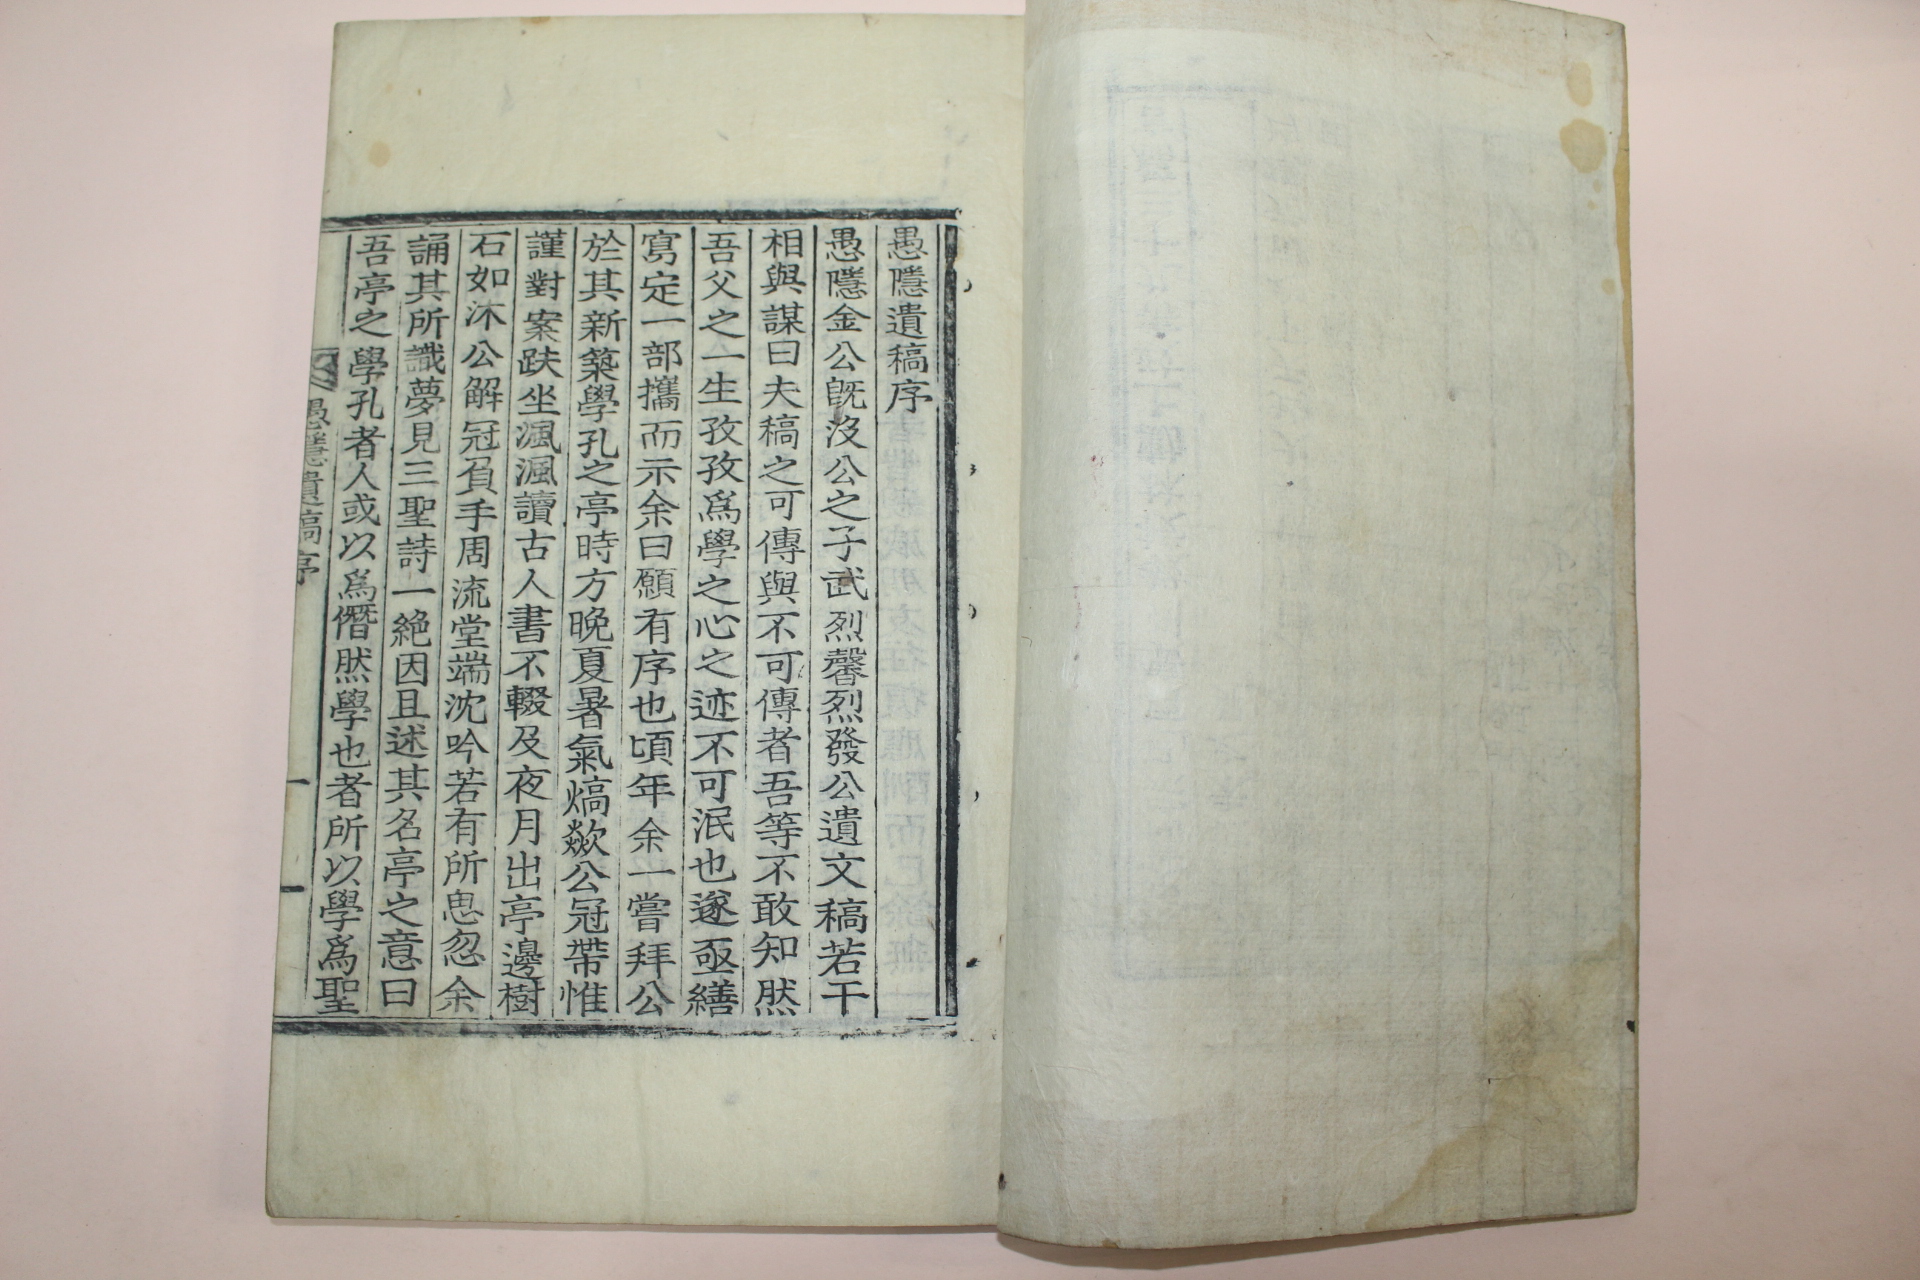 愚隱遺稿序
愚隱金公旣沒公之子武烈馨烈發公遺文稿若干
相與謀曰夫稿之可傳與不可傳者吾等不敢知然
吾父之一生孜孜爲學之心之迹不可泯也遂亟繕
寫定一部攜而示余曰願有序也頃年余一嘗拜公
於其新築學孔之亭時方晩夏暑氣熇歊公冠帶惟
謹對案趺坐渢渢讀古人書不輟及夜月出亭邊樹
石如沐公解冠負手周流堂端沈吟若有所思忽余
誦其所識夢見三聖詩一絶因且述其名亭之意曰
吾亭之學孔者人或以爲僭然學也者所以學爲聖
愚隱遺稿序
一